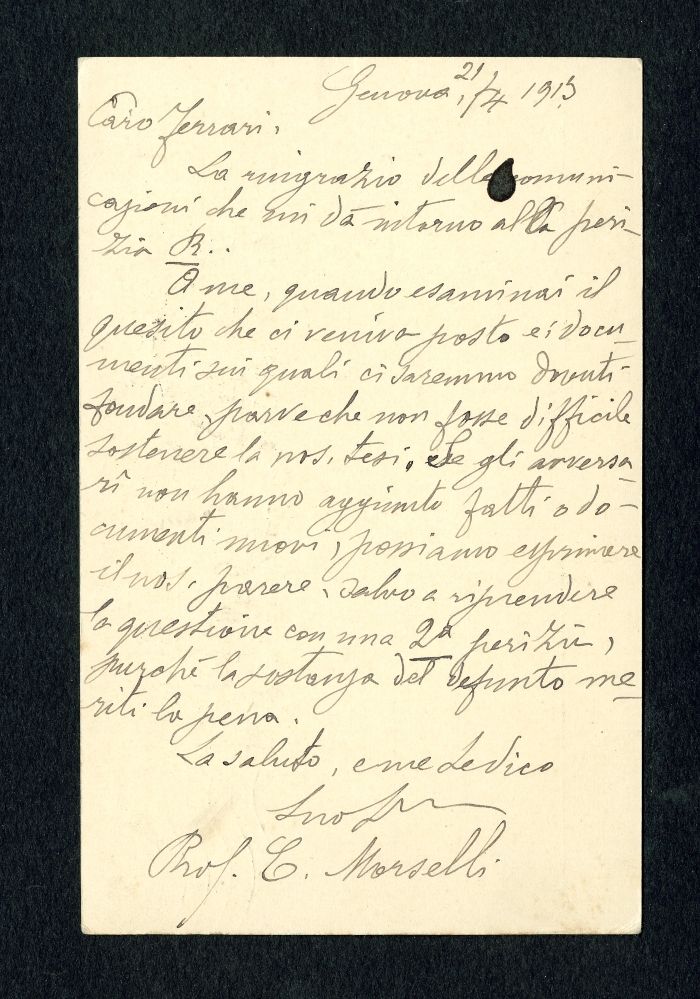 Genova, 21/4 1913
Caro Ferrari,
La ringrazio delle comuni-
cazioni che mi dà intorno alla peri-
zia R..
A me, quando esaminai il
quesito che ci veniva posto e i docu-
menti sui quali ci saremmo dovuti
fondare, parve che non fosse difficile
sostenere la nos. tesi. Se gli avversa
rî non hanno aggiunto fatti o do-
cumenti nuovi, possiamo esprimere
il nos. parere, salvo a riprendere
la questione con una 2ª perizia,
purché la sostanza del defunto me-
riti la pena.
La saluto, e me Le dico
Suo
Prof. E. Morselli